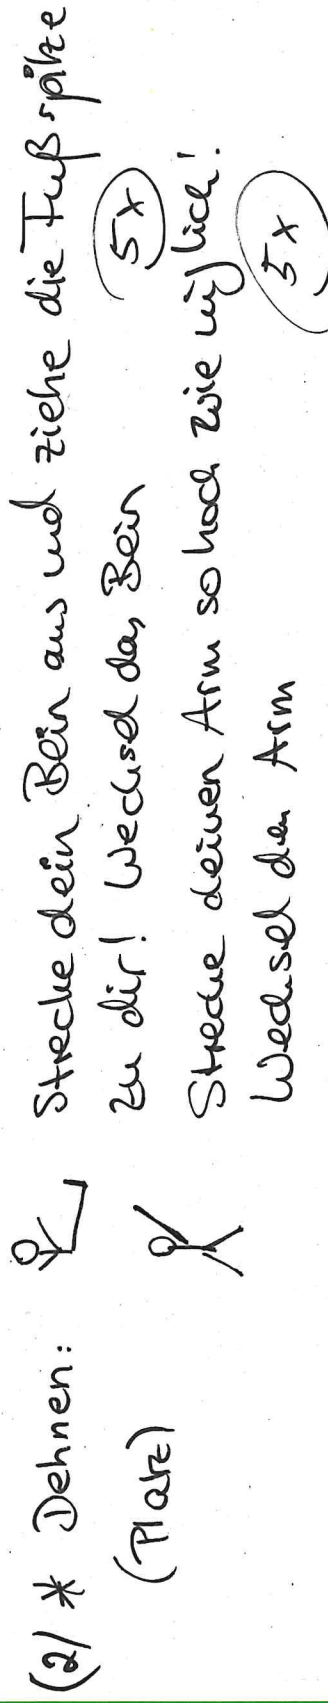 (2) * Dehnen: Strecke dein Bein aus und ziehe die Fußspitze
(Platz) zu dir! Wechsel das Bein 5x
Strecke deinen Arm so hoch wie möglich!
Wechsel den Arm 5x